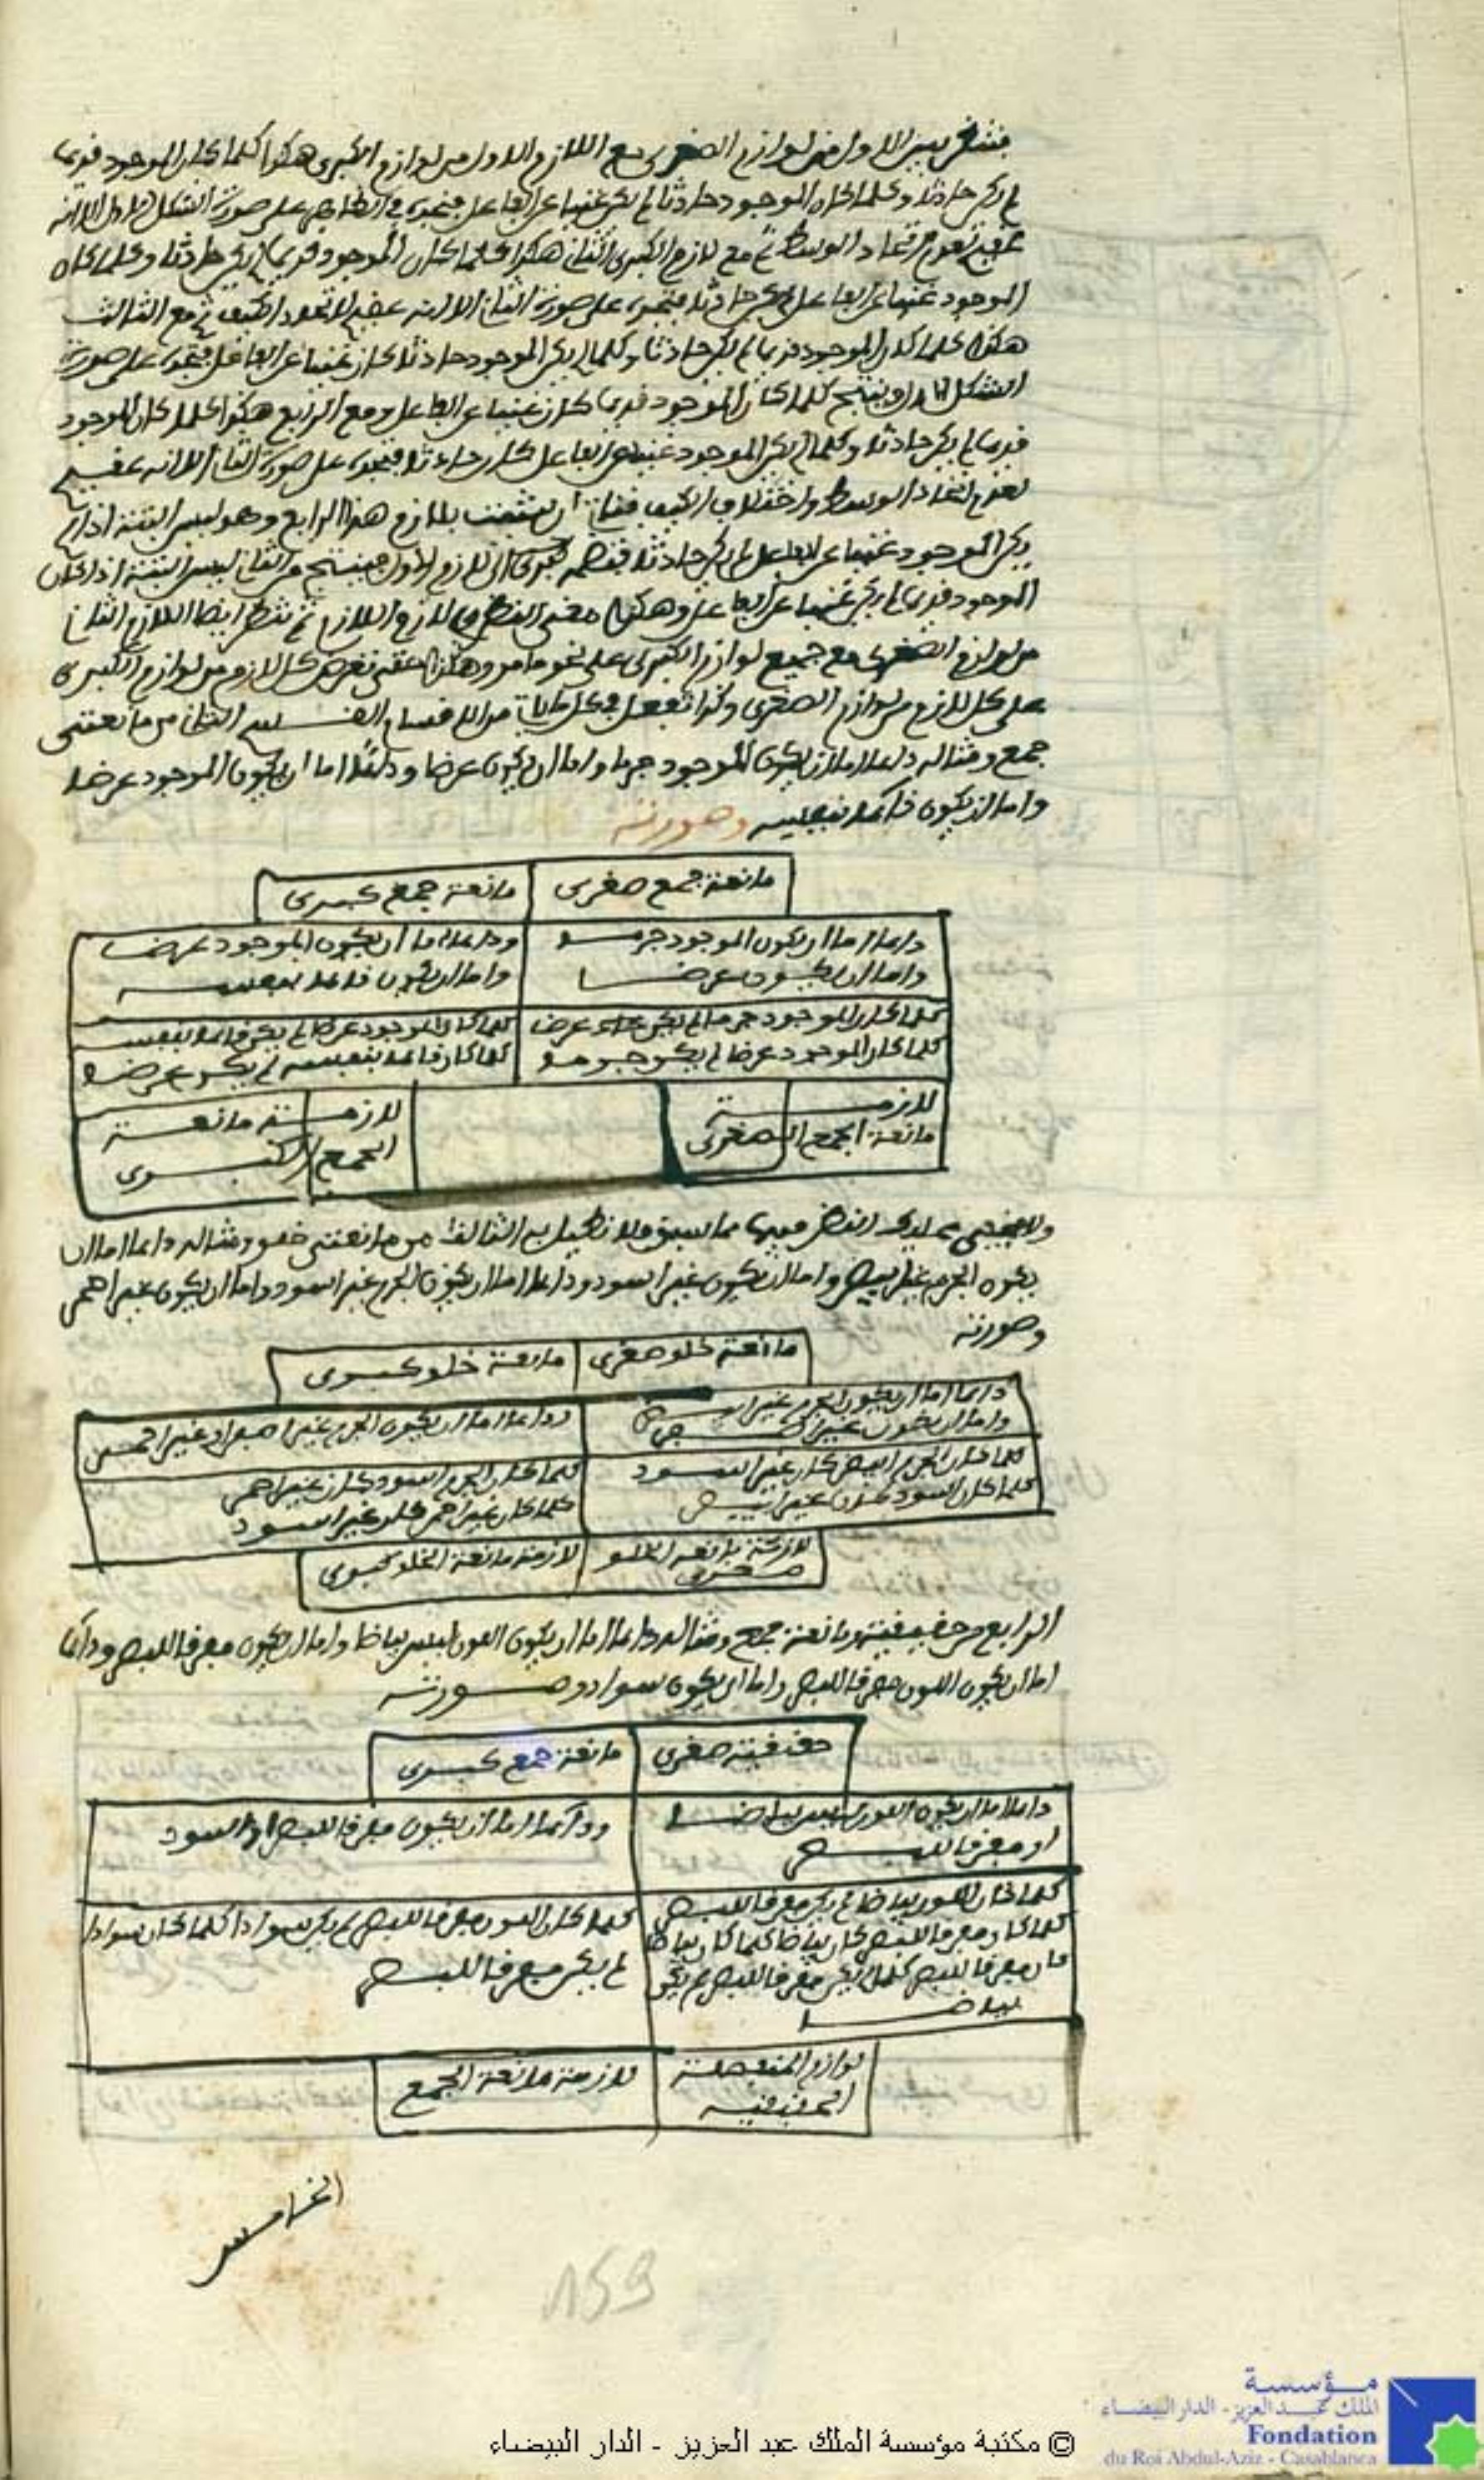 فتنظر بين الاول من لوازم الصغرى مع اللازم الاول من لوازم الكبرى هكذا كلما كان الموجود قديما
لم يكن حادثا وكلما كان الموجود حادثا لم يكن غنيا عن الفاعل فتجده في الظاهر على صورة الشكل الاول الا انه
عقيم لعدم اتحاد الوسط ثم مع لازم الكبرى الثاني هكذا كلما كان الموجود قديما لم يكن حادثا وكلما كان
الموجود غنيا عن الفاعل لم يكن حادثا فتجده على صورة الثاني الا انه عقيم لاتحاد الكيف ثم مع الثالث
هكذا كلما كان الموجود قديما لم يكن حادثا وكلما لم يكن الموجود حادثا كان غنيا عن الفاعل فتجده على صورة
الشكل الاول وينتج كلما كان الموجود قديما كان غنيا عن الفاعل ومع الرابع هكذا كلما كان الموجود
قديما لم يكن حادثا وكلما لم يكن الموجود غنيا عن الفاعل كان حادثا فتجده على صورة الثاني الا انه عقيم
لعدم اتحاد الوسط واختلاف الكيف بلازم هذا الرابع وهو ليس البتة اذا لم
يكن الموجود غنيا عن الفاعل لم يكن حادثا كبرى الى اللازم الاول فينتج من الثاني ليس البتة اذا كان
الموجود قديما لم يكن غنيا عن الفاعل وهكذا معنى النظر في لازم اللازم ثم تنظر ايضا اللازم الثاني
من لوازم الصغرى مع جميع لوازم الكبرى على نحو ما مر وهكذا حتى تعرض كل لازم من لوازم الكبرى
على كل لازم من لوازم الصغرى وكذا تفعل في كل ما ياتي من الاقسام القسم الثاني من مانعتي
جمع ومثاله دائما اما ان يكون الموجود جرما واما ان يكون عرضا ودائما اما ان يكون الموجود عرضا
واما ان يكون قائما بنفسه وصورته
مانعة جمع صغرى مانعة جمع كبرى
دائما اما ان يكون الموجود جرما ودائما اما ان يكون الموجود عرضا
واما ان يكون عرضا واما ان يكون قائما بنفسه
كلما كان الموجود جرما لم يكن عرضا كلما كان الموجود عرضا لم يكن قائما بنفسه
كلما كان الموجود عرضا لم يكن جرما كلما كان قائما بنفسه لم يكن عرضا
لازمة لازمة مانعة
مانعة الجمع الصغرى الجمع الكبرى
ولا يخفى عليك النظر فيها مما سبق فلا نطيل به الثالث من مانعتي خلو ومثاله دائما اما ان
يكون الجرم غير ابيض واما ان يكون غير اسود ودائما اما ان يكون الجرم غير اسود واما ان يكون غير احمر
وصورته
مانعة خلو صغرى مانعة خلو كبرى
دائما اما ان يكون الجرم غير ودائما اما ان يكون الجرم غير او غير احمر
واما ان يكون غير
كلما كان الجرم ابيض كان غير اسود كلما كان الجرم اسود كان غير احمر
كلما كان اسود كان غير ابيض كلما كان غير احمر كان غير اسود
لازمة مانعة الخلو لازمة مانعة الخلو كبرى
صغرى
الرابع من حقيقية ومانعة جمع ومثاله دائما اما ان يكون اللون ليس بياضا واما ان يكون مفرقا للبصر ودائما
اما ان يكون اللون مفرقا للبصر واما ان يكون سوادا وصورته
حقيقية صغرى مانعة جمع كبرى
دائما اما ان يكون اللون ليس بياضا ودائما اما ان يكون مفرقا للبصر او اسود
او مفرقا للبصر
كلما كان اللون بياضا لم يكن مفرقا للبصر كلما كان اللون مفرقا للبصر لم يكن سوادا كلما كان سوادا
كلما كان مفرقا للبصر كان بياضا كلما كان بياضا لم يكن مفرقا للبصر
كان مفرقا للبصر كلما لم يكن مفرقا للبصر لم يكن
بياضا
لوازم المنفصلة لازمة مانعة الجمع
الحقيقية
الخامس
159
مؤسسة
الملك عبد العزيز - الدار البيضاء
Fondation
du Roi Abdul-Aziz - Casablanca
© مكتبة مؤسسة الملك عبد العزيز - الدار البيضاء